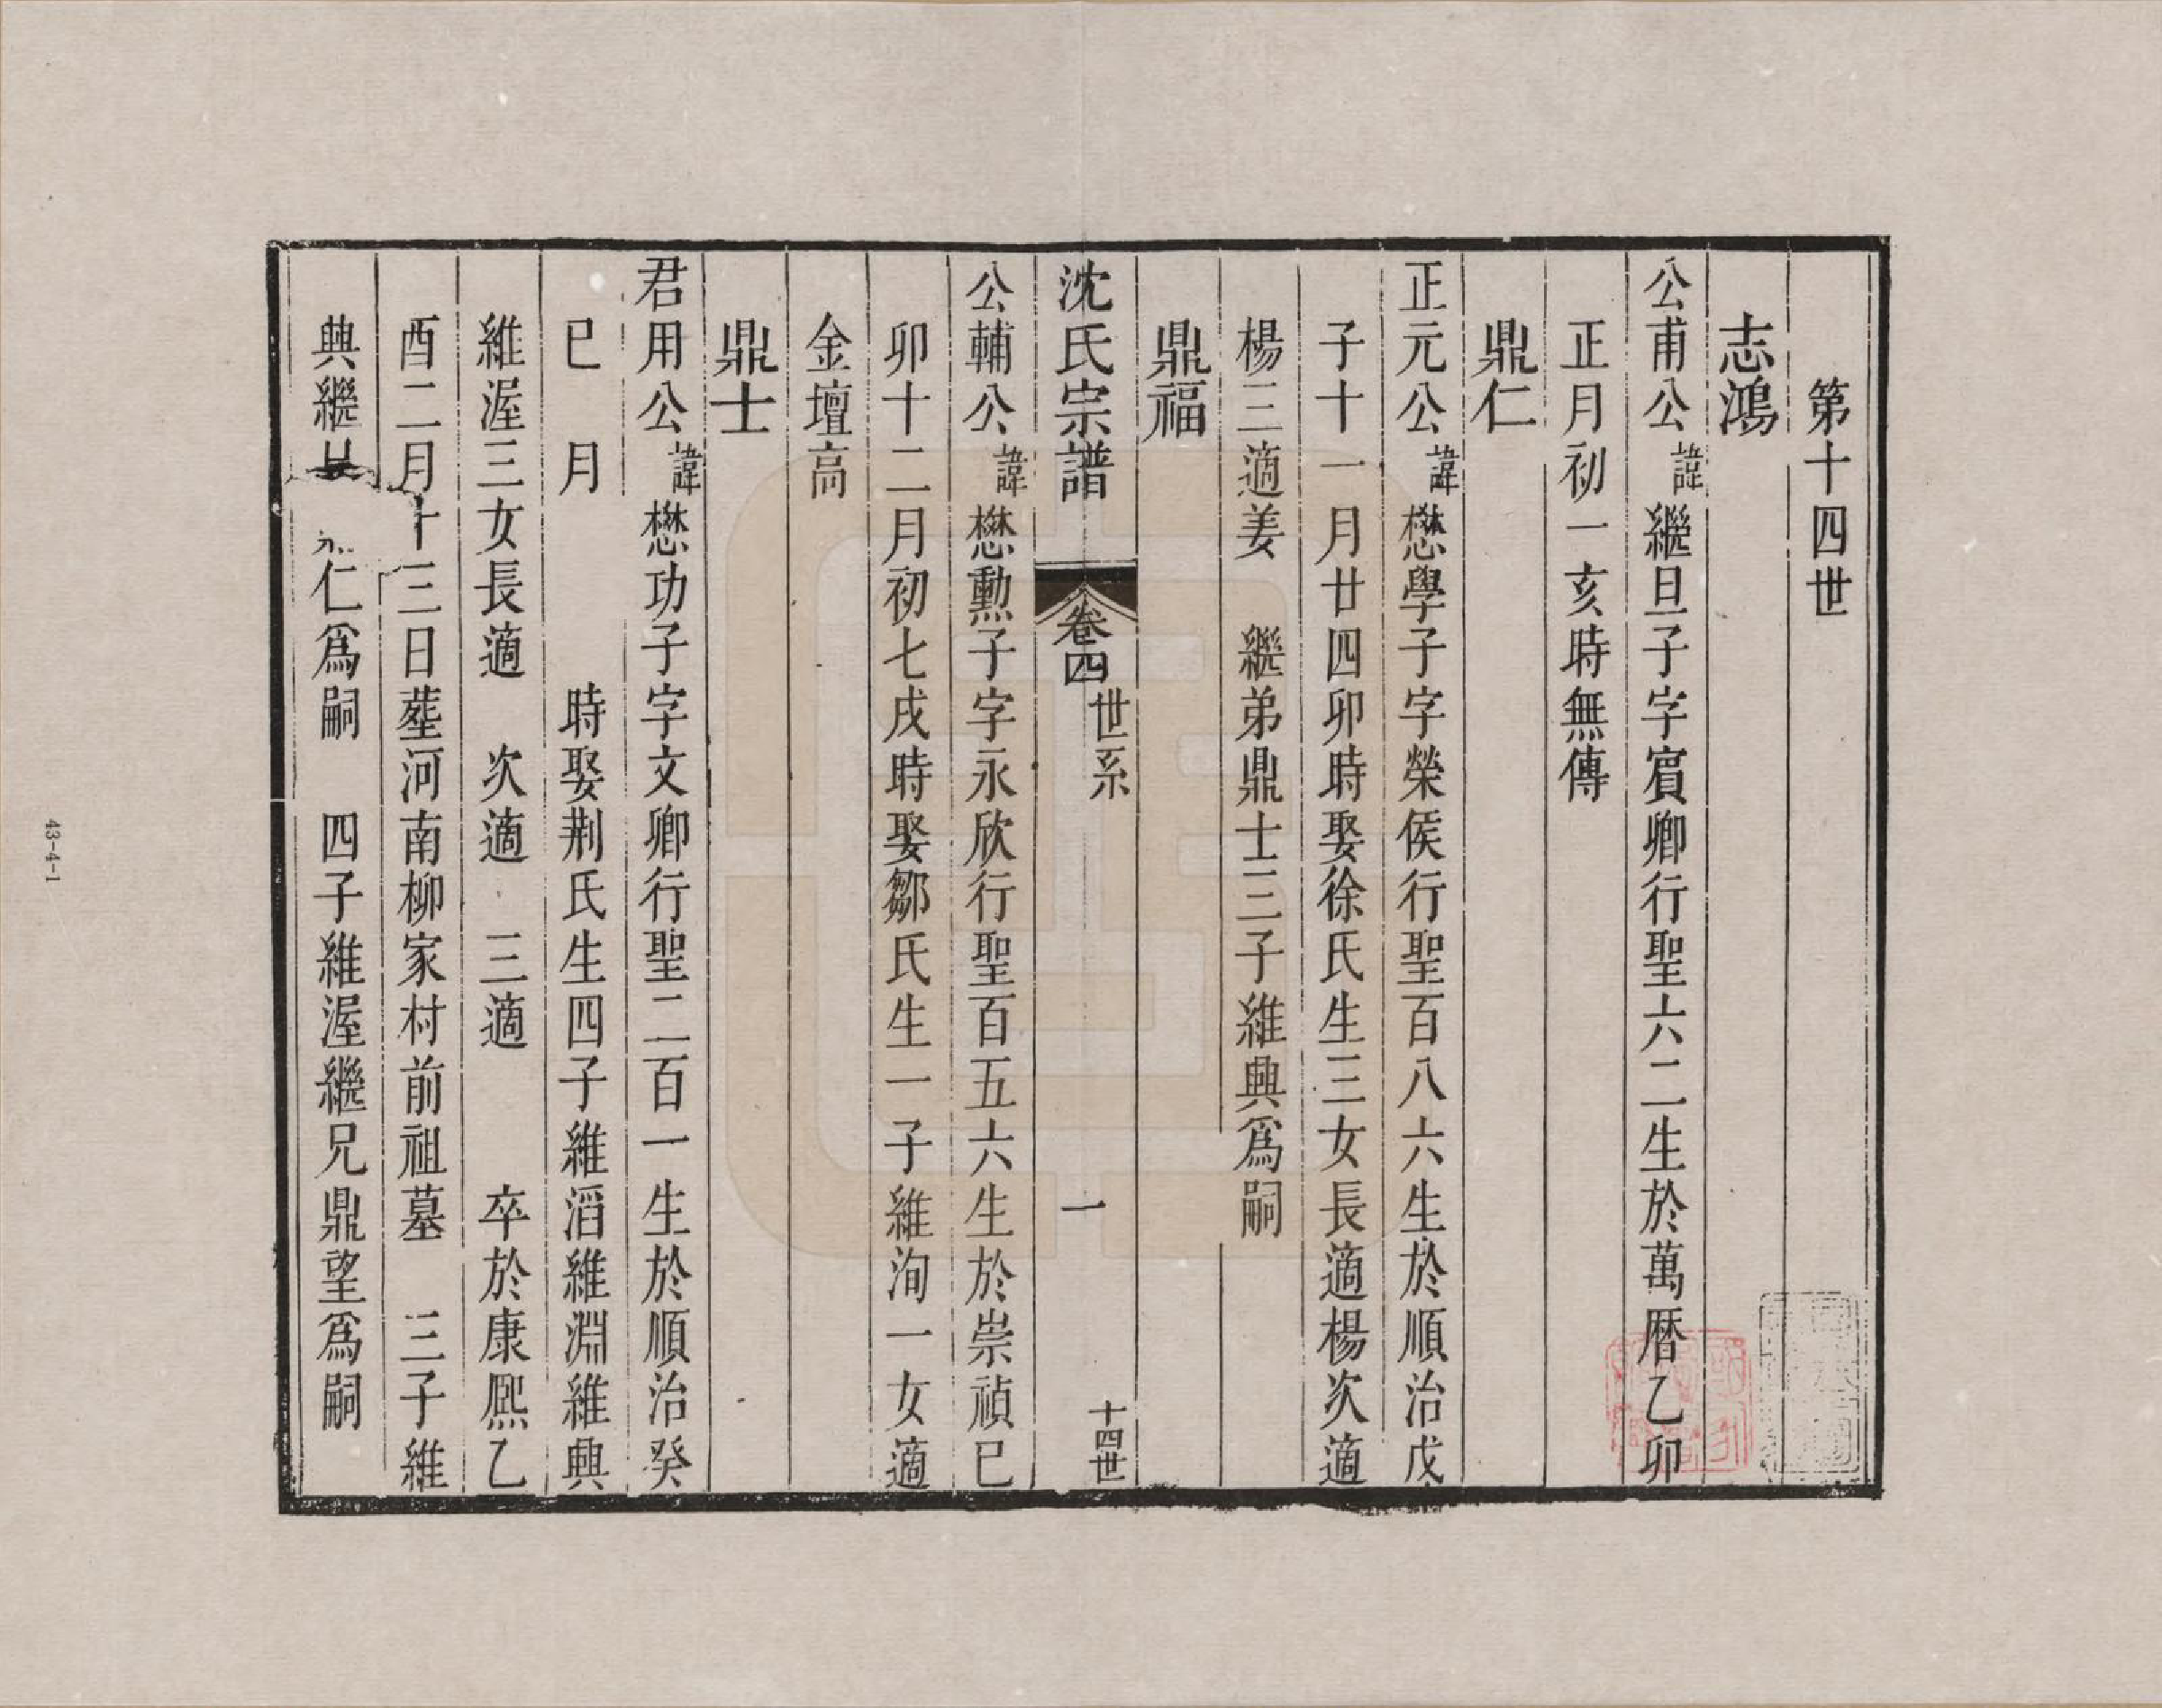 第十四世
志鴻
公甫公諱繼旦子字賔卿行聖六二生於萬曆乙卯
正月初一亥時無傳
鼎仁
正元公諱懋學子字榮侯行聖百八六生於順治戊
子十一月廿四卯時娶徐氏生三女長適楊次適
楊三適姜　繼弟鼎士三子維興爲嗣
鼎福
沈氏宗譜　卷四　世系　一　十四世
公輔公諱懋勲子字永欣行聖百五六生於崇禎己
卯十二月初七戌時娶鄒氏生一子維洵一女適
金壇高
鼎士
君用公諱懋功子字文卿行聖二百一生於順治癸
巳　月　　　時娶荆氏生四子維滔維淵維興
維渥三女長適　次適　三適　　卒於康熈乙
酉二月十三日塟河南柳家村前祖墓　三子維
興繼　仁爲嗣　四子維渥繼兄鼎望爲嗣
43-4-1